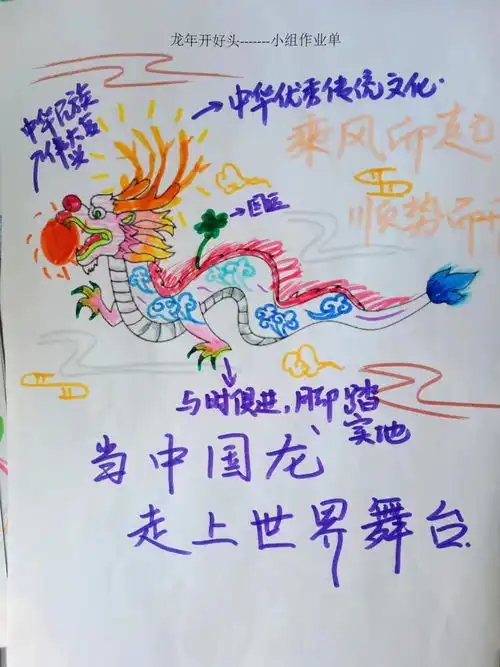 龙年开好头-------小组作业单
→中华优秀传统文化.
中华民族
乘风而起
顺势而
→国运
与时俱进,脚踏
实地
当中国龙
走上世界舞台.